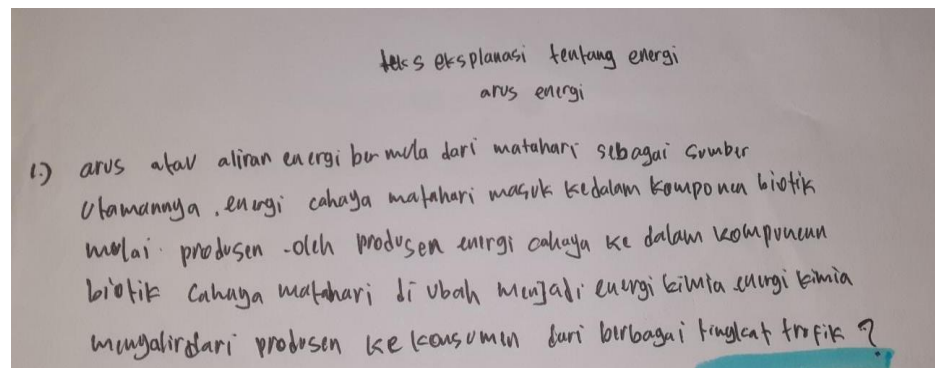 teks eksplanasi tentang energi
arus energi
1.) arus atau aliran energi bermula dari matahari sebagai sumber
Utamannya . energi cahaya matahari masuk kedalam komponen biotik
mulai produsen . oleh produsen energi cahaya ke dalam komponenn
biotik cahaya matahari di ubah menjadi energi kimia energi kimia
mengalir dari produsen ke konsumen dari berbagai tingkat trofik ?